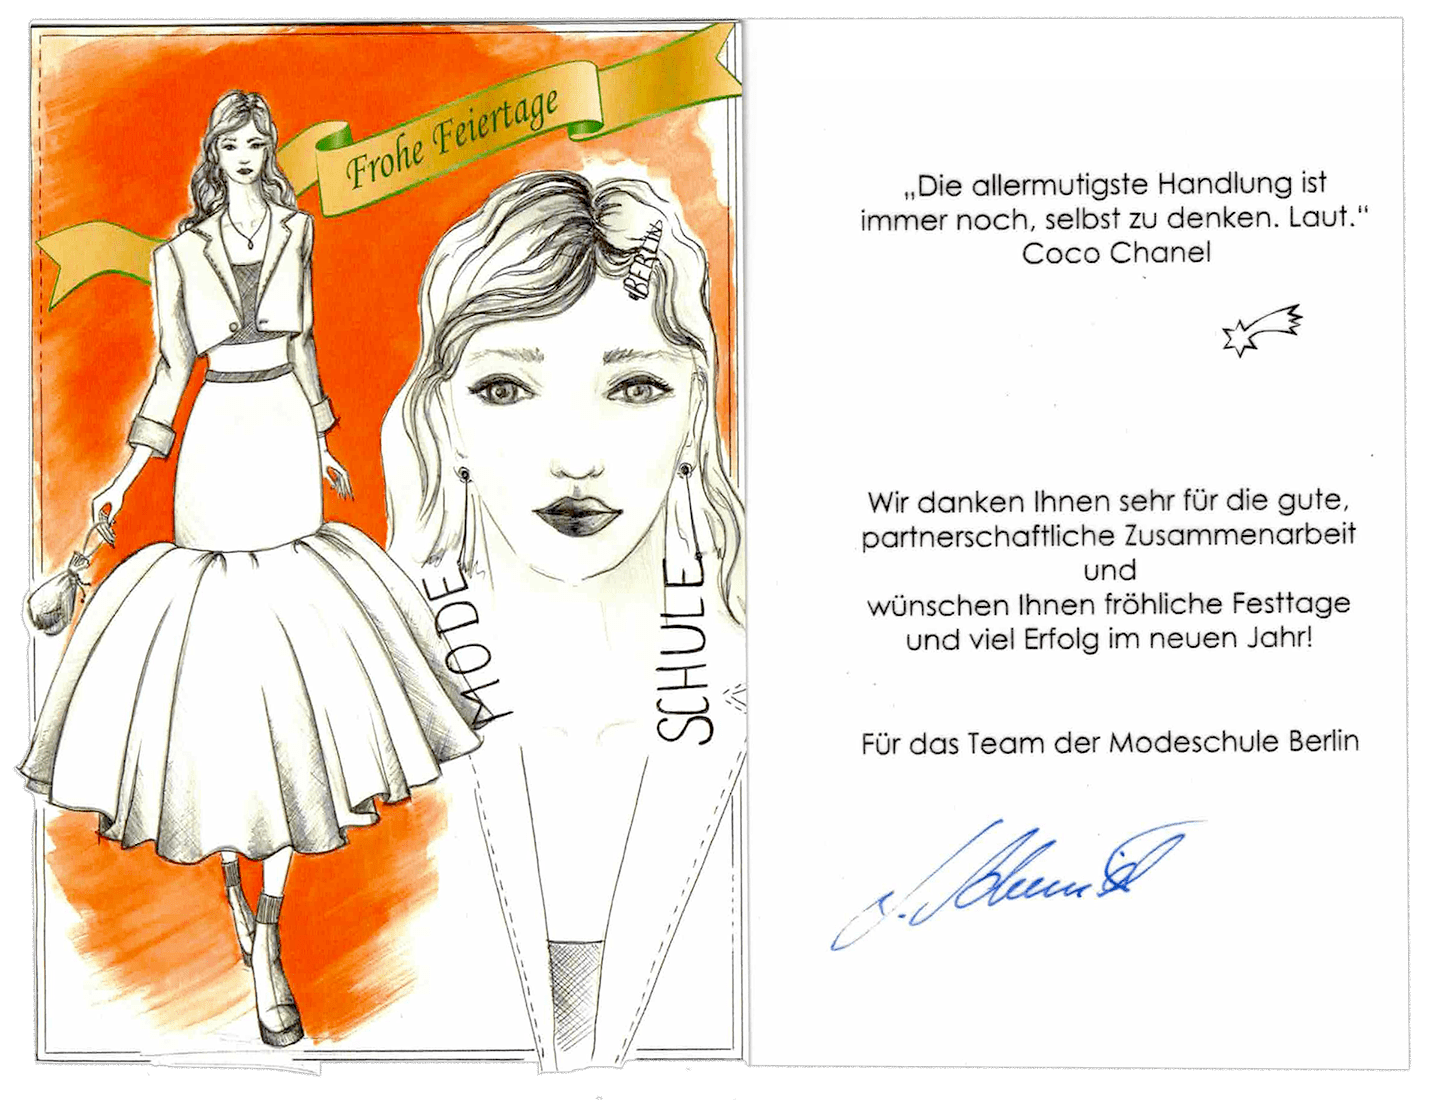 Frohe Feiertage
BERLIN
MODE
SCHULE
„Die allermutigste Handlung ist
immer noch, selbst zu denken. Laut.“
Coco Chanel
Wir danken Ihnen sehr für die gute,
partnerschaftliche Zusammenarbeit
und
wünschen Ihnen fröhliche Festtage
und viel Erfolg im neuen Jahr!
Für das Team der Modeschule Berlin